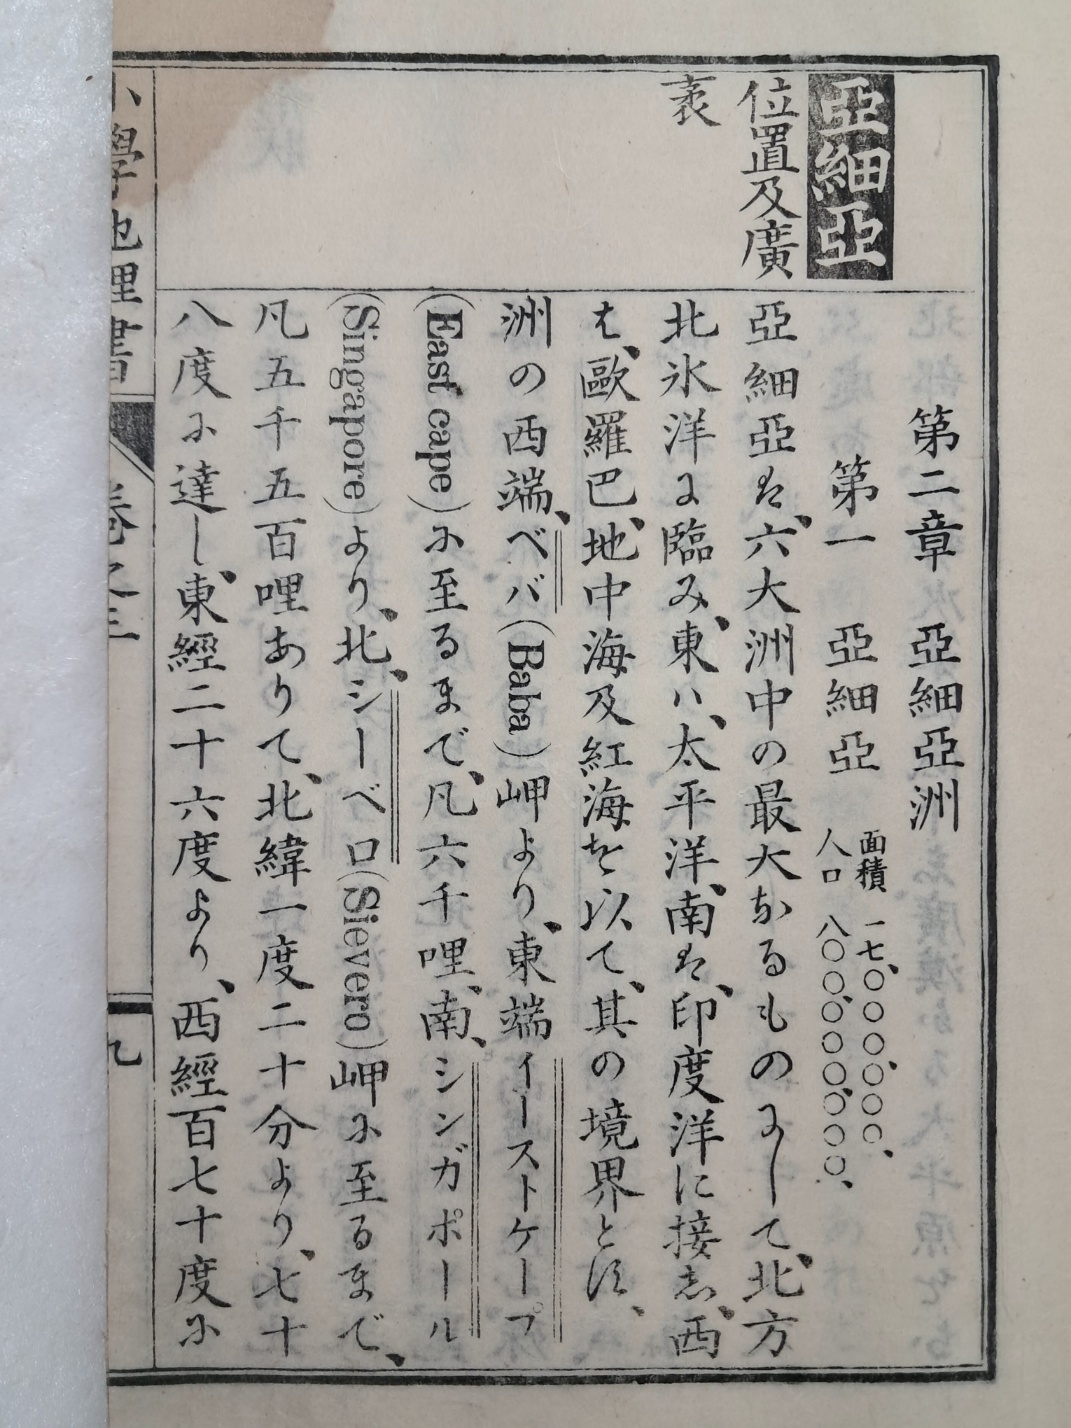 亞細亞
位置及廣
袤
第二章 亞細亞洲
第一 亞細亞 面積 一七、〇〇〇、〇〇〇、
人口 八〇〇、〇〇〇、〇〇〇、
亞細亞は、六大洲中の最大なるものにして、北方
北氷洋に臨み、東ハ、太平洋、南は、印度洋に接し、西
は、歐羅巴、地中海及紅海を以て、其の境界とす、
洲の西端、ベバ(Baba)岬より、東端イーストケープ
(East cape)に至るまで、凡六千哩、南、シンガポール
(Singapore)より、北、シーベロ(Sievero)岬に至るまで、
凡五千五百哩ありて、北緯一度二十分より、七十
八度に達し、東經二十六度より、西經百七十度に
小學地理書
卷之三
九